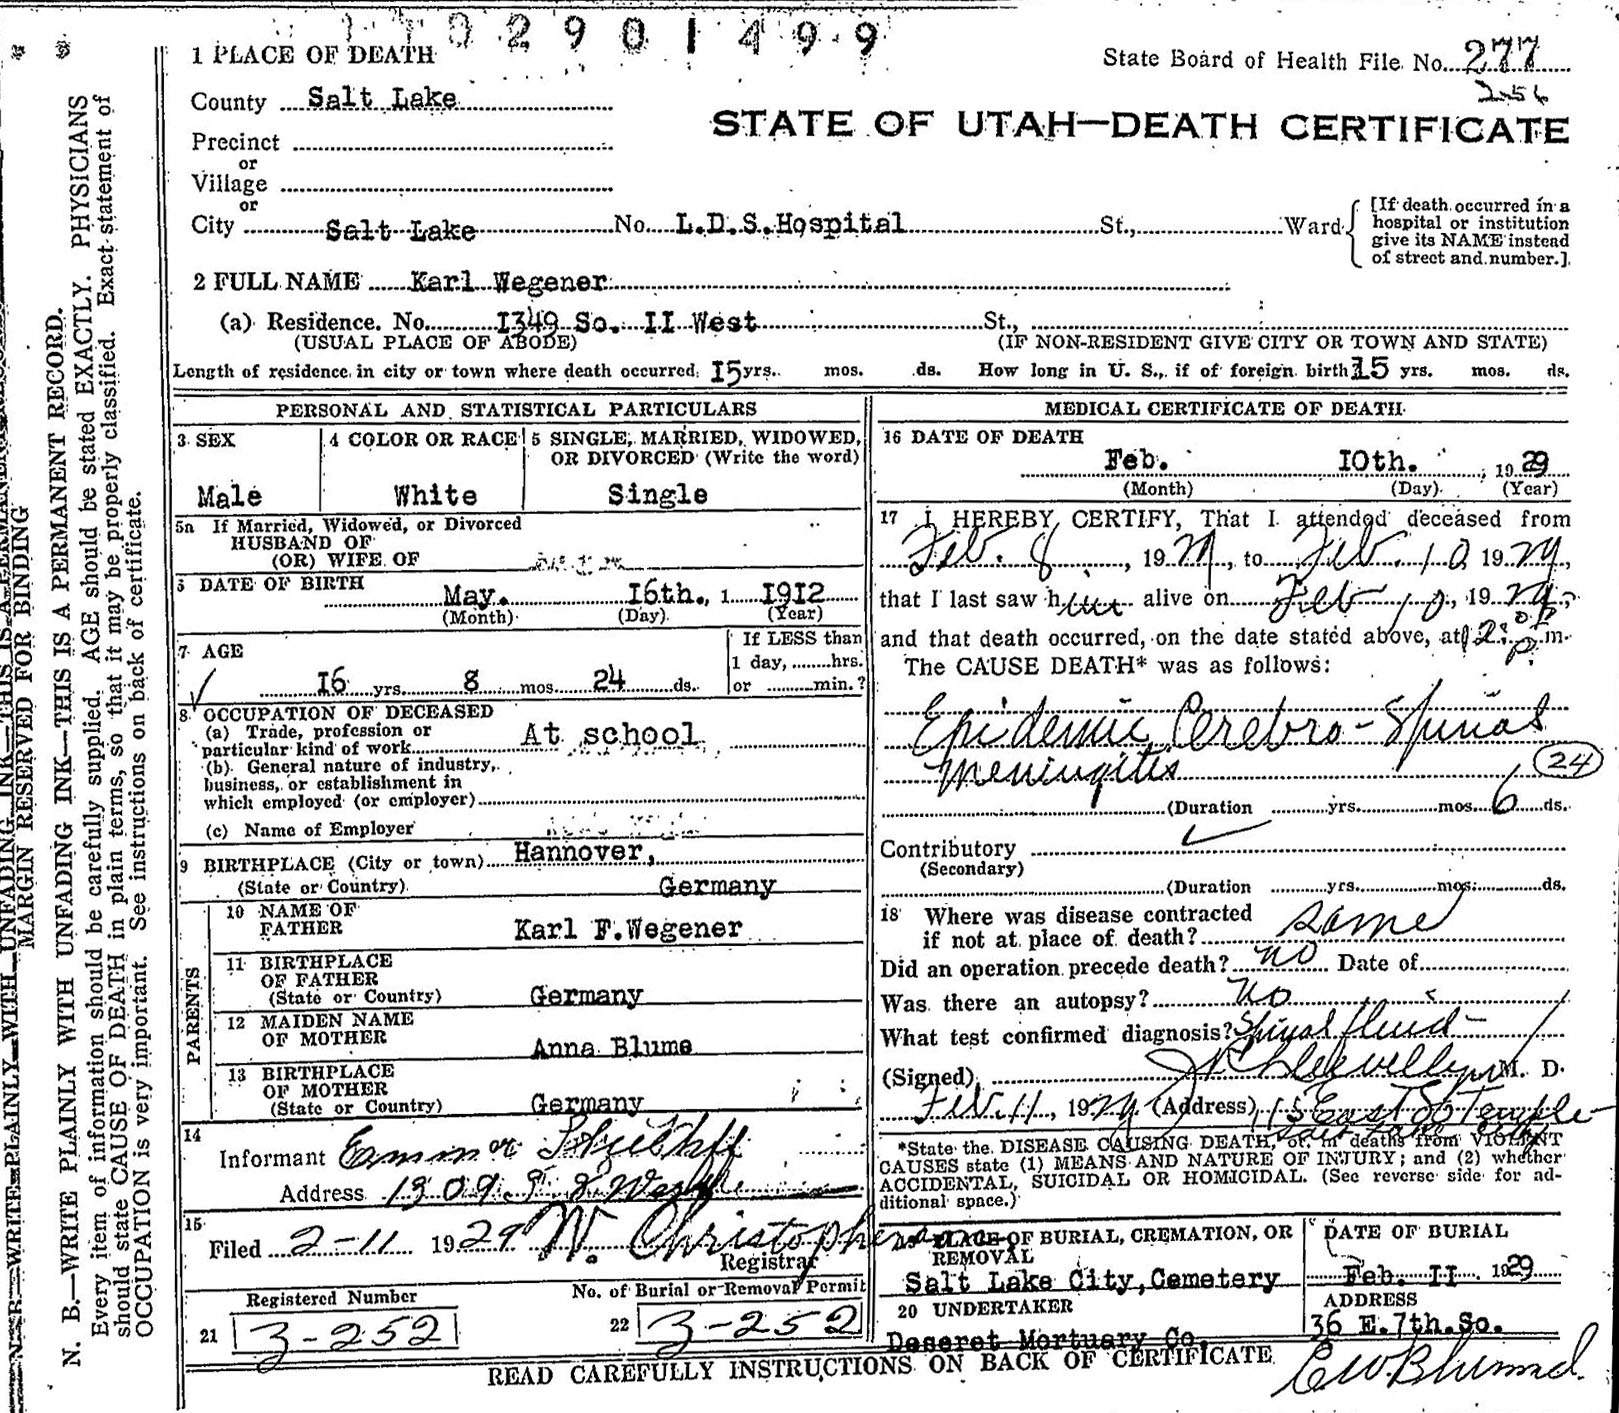 02901499
1 PLACE OF DEATH
State Board of Health File No. 277
256
County Salt Lake
STATE OF UTAH—DEATH CERTIFICATE
Precinct
or
Village
or
City Salt Lake No. L.D.S. Hospital St., Ward
[If death occurred in a
hospital or institution
give its NAME instead
of street and number.]
2 FULL NAME Karl Wegener
(a) Residence. No. I349 So. II West St.,
(USUAL PLACE OF ABODE) (IF NON-RESIDENT GIVE CITY OR TOWN AND STATE)
Length of residence in city or town where death occurred I5 yrs. mos. ds. How long in U. S., if of foreign birth I5 yrs. mos. ds.
PERSONAL AND STATISTICAL PARTICULARS
3 SEX
Male
4 COLOR OR RACE
White
5 SINGLE, MARRIED, WIDOWED,
OR DIVORCED (Write the word)
Single
5a If Married, Widowed, or Divorced
HUSBAND OF
(OR) WIFE OF
6 DATE OF BIRTH
May. I6th., 1 I9I2
(Month) (Day) (Year)
7 AGE
I6 yrs. 8 mos. 24 ds.
If LESS than
1 day, ........hrs.
or .........min.?
8 OCCUPATION OF DECEASED
(a) Trade, profession or
particular kind of work At school
(b) General nature of industry,
business, or establishment in
which employed (or employer)
(c) Name of Employer
9 BIRTHPLACE (City or town) Hannover,
(State or Country) Germany
PARENTS
10 NAME OF
FATHER Karl F. Wegener
11 BIRTHPLACE
OF FATHER
(State or Country) Germany
12 MAIDEN NAME
OF MOTHER Anna Blume
13 BIRTHPLACE
OF MOTHER
(State or Country) Germany
14
Informant
Address 1309
15
Filed 2-11 1929 W. Christophers
Registrar
Registered Number
21 3-252
No. of Burial or Removal Permit
22 3-252
MEDICAL CERTIFICATE OF DEATH
16 DATE OF DEATH
Feb. I0th. , 19 29
(Month) (Day) (Year)
17 I HEREBY CERTIFY, That I attended deceased from
Feb. 8, 1929, to Feb. 10 1929,
that I last saw him alive on Feb 10, 1929,
and that death occurred, on the date stated above, at m.
The CAUSE DEATH* was as follows:
Epidemic Cerebro-Spinal
Meningitis
24
(Duration yrs. mos. 6 ds.
Contributory
(Secondary)
(Duration yrs. mos. ds.
18 Where was disease contracted
if not at place of death? same
Did an operation precede death? no Date of
Was there an autopsy? no
What test confirmed diagnosis? Spinal fluid
(Signed) M. D.
Feb. 11, 1929 (Address) 115 East So Temple
*State the DISEASE CAUSING DEATH, or, in deaths from VIOLENT
CAUSES state (1) MEANS AND NATURE OF INJURY; and (2) whether
ACCIDENTAL, SUICIDAL OR HOMICIDAL. (See reverse side for ad-
ditional space.)
19 PLACE OF BURIAL, CREMATION, OR
REMOVAL
Salt Lake City, Cemetery
DATE OF BURIAL
Feb. II. 1929
20 UNDERTAKER
Deseret Mortuary Co.
ADDRESS
36 E. 7th. So.
READ CAREFULLY INSTRUCTIONS ON BACK OF CERTIFICATE
MARGIN RESERVED FOR BINDING
N. B.—WRITE PLAINLY WITH UNFADING INK—THIS IS A PERMANENT RECORD.
Every item of information should be carefully supplied. AGE should be stated EXACTLY. PHYSICIANS
should state CAUSE OF DEATH in plain terms, so that it may be properly classified. Exact statement of
OCCUPATION is very important. See instructions on back of certificate.